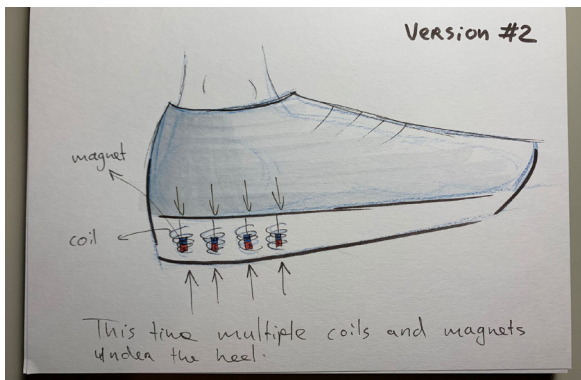 Version #2
magnet
coil
This time multiple coils and magnets
under the heel.